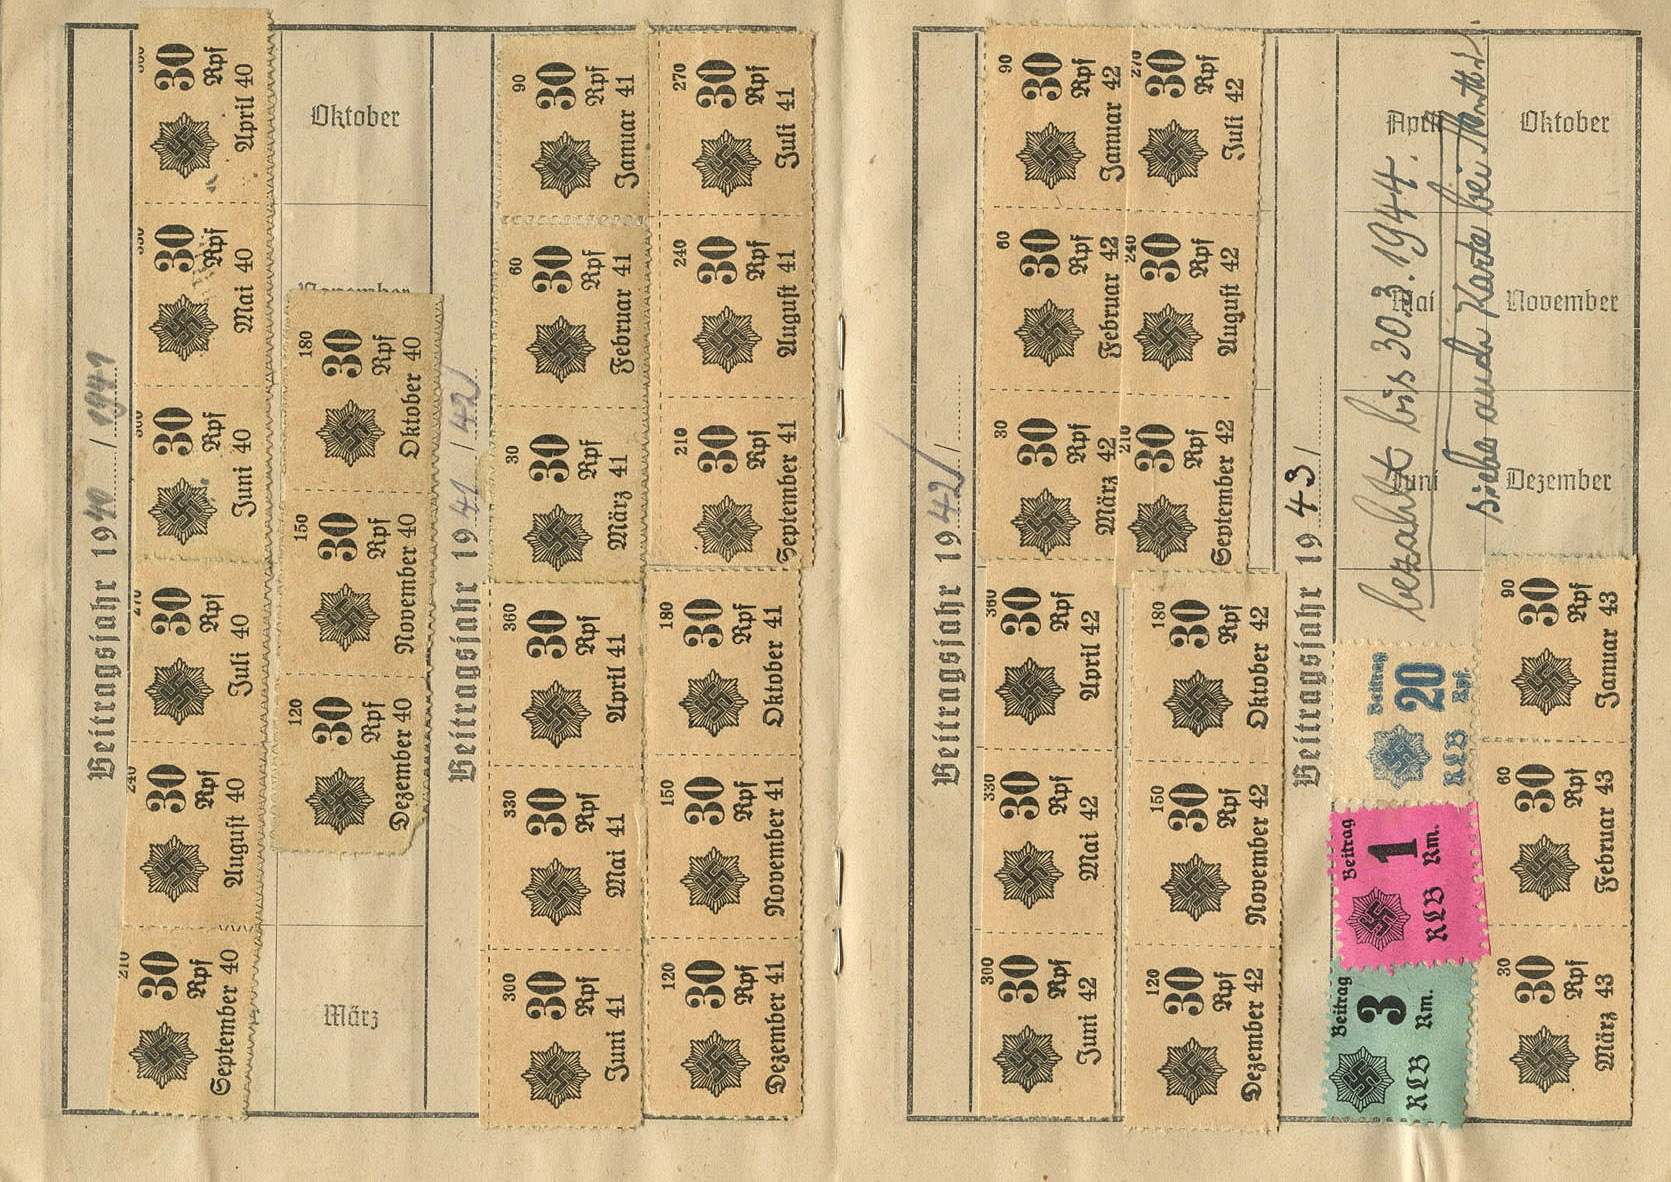 Beitragsjahr 1940 / 1941
300 30 Rpf April 40
330 30 Rpf Mai 40
300 30 Rpf Juni 40
270 30 Rpf Juli 40
240 30 Rpf August 40
210 30 Rpf September 40
Oktober
November
180 30 Rpf Oktober 40
150 30 Rpf November 40
120 30 Rpf Dezember 40
März
Beitragsjahr 1941 / 42
90 30 Rpf Januar 41
60 30 Rpf Februar 41
30 30 Rpf März 41
360 30 Rpf April 41
330 30 Rpf Mai 41
300 30 Rpf Juni 41
270 30 Rpf Juli 41
240 30 Rpf August 41
210 30 Rpf September 41
180 30 Rpf Oktober 41
150 30 Rpf November 41
120 30 Rpf Dezember 41
Beitragsjahr 1942 /
90 30 Rpf Januar 42
60 30 Rpf Februar 42
30 30 Rpf März 42
360 30 Rpf April 42
330 30 Rpf Mai 42
300 30 Rpf Juni 42
270 30 Rpf Juli 42
240 30 Rpf August 42
210 30 Rpf September 42
180 30 Rpf Oktober 42
150 30 Rpf November 42
120 30 Rpf Dezember 42
Beitragsjahr 1943 /
April
Mai
Juni
bezahlt bis 30.3.1944.
siehe auch Karte bei
Beitrag 20 Rpf. RLB
Beitrag 1 Rm. RLB
Beitrag 3 Rm. RLB
Oktober
November
Dezember
90 30 Rpf Januar 43
60 30 Rpf Februar 43
30 30 Rpf März 43